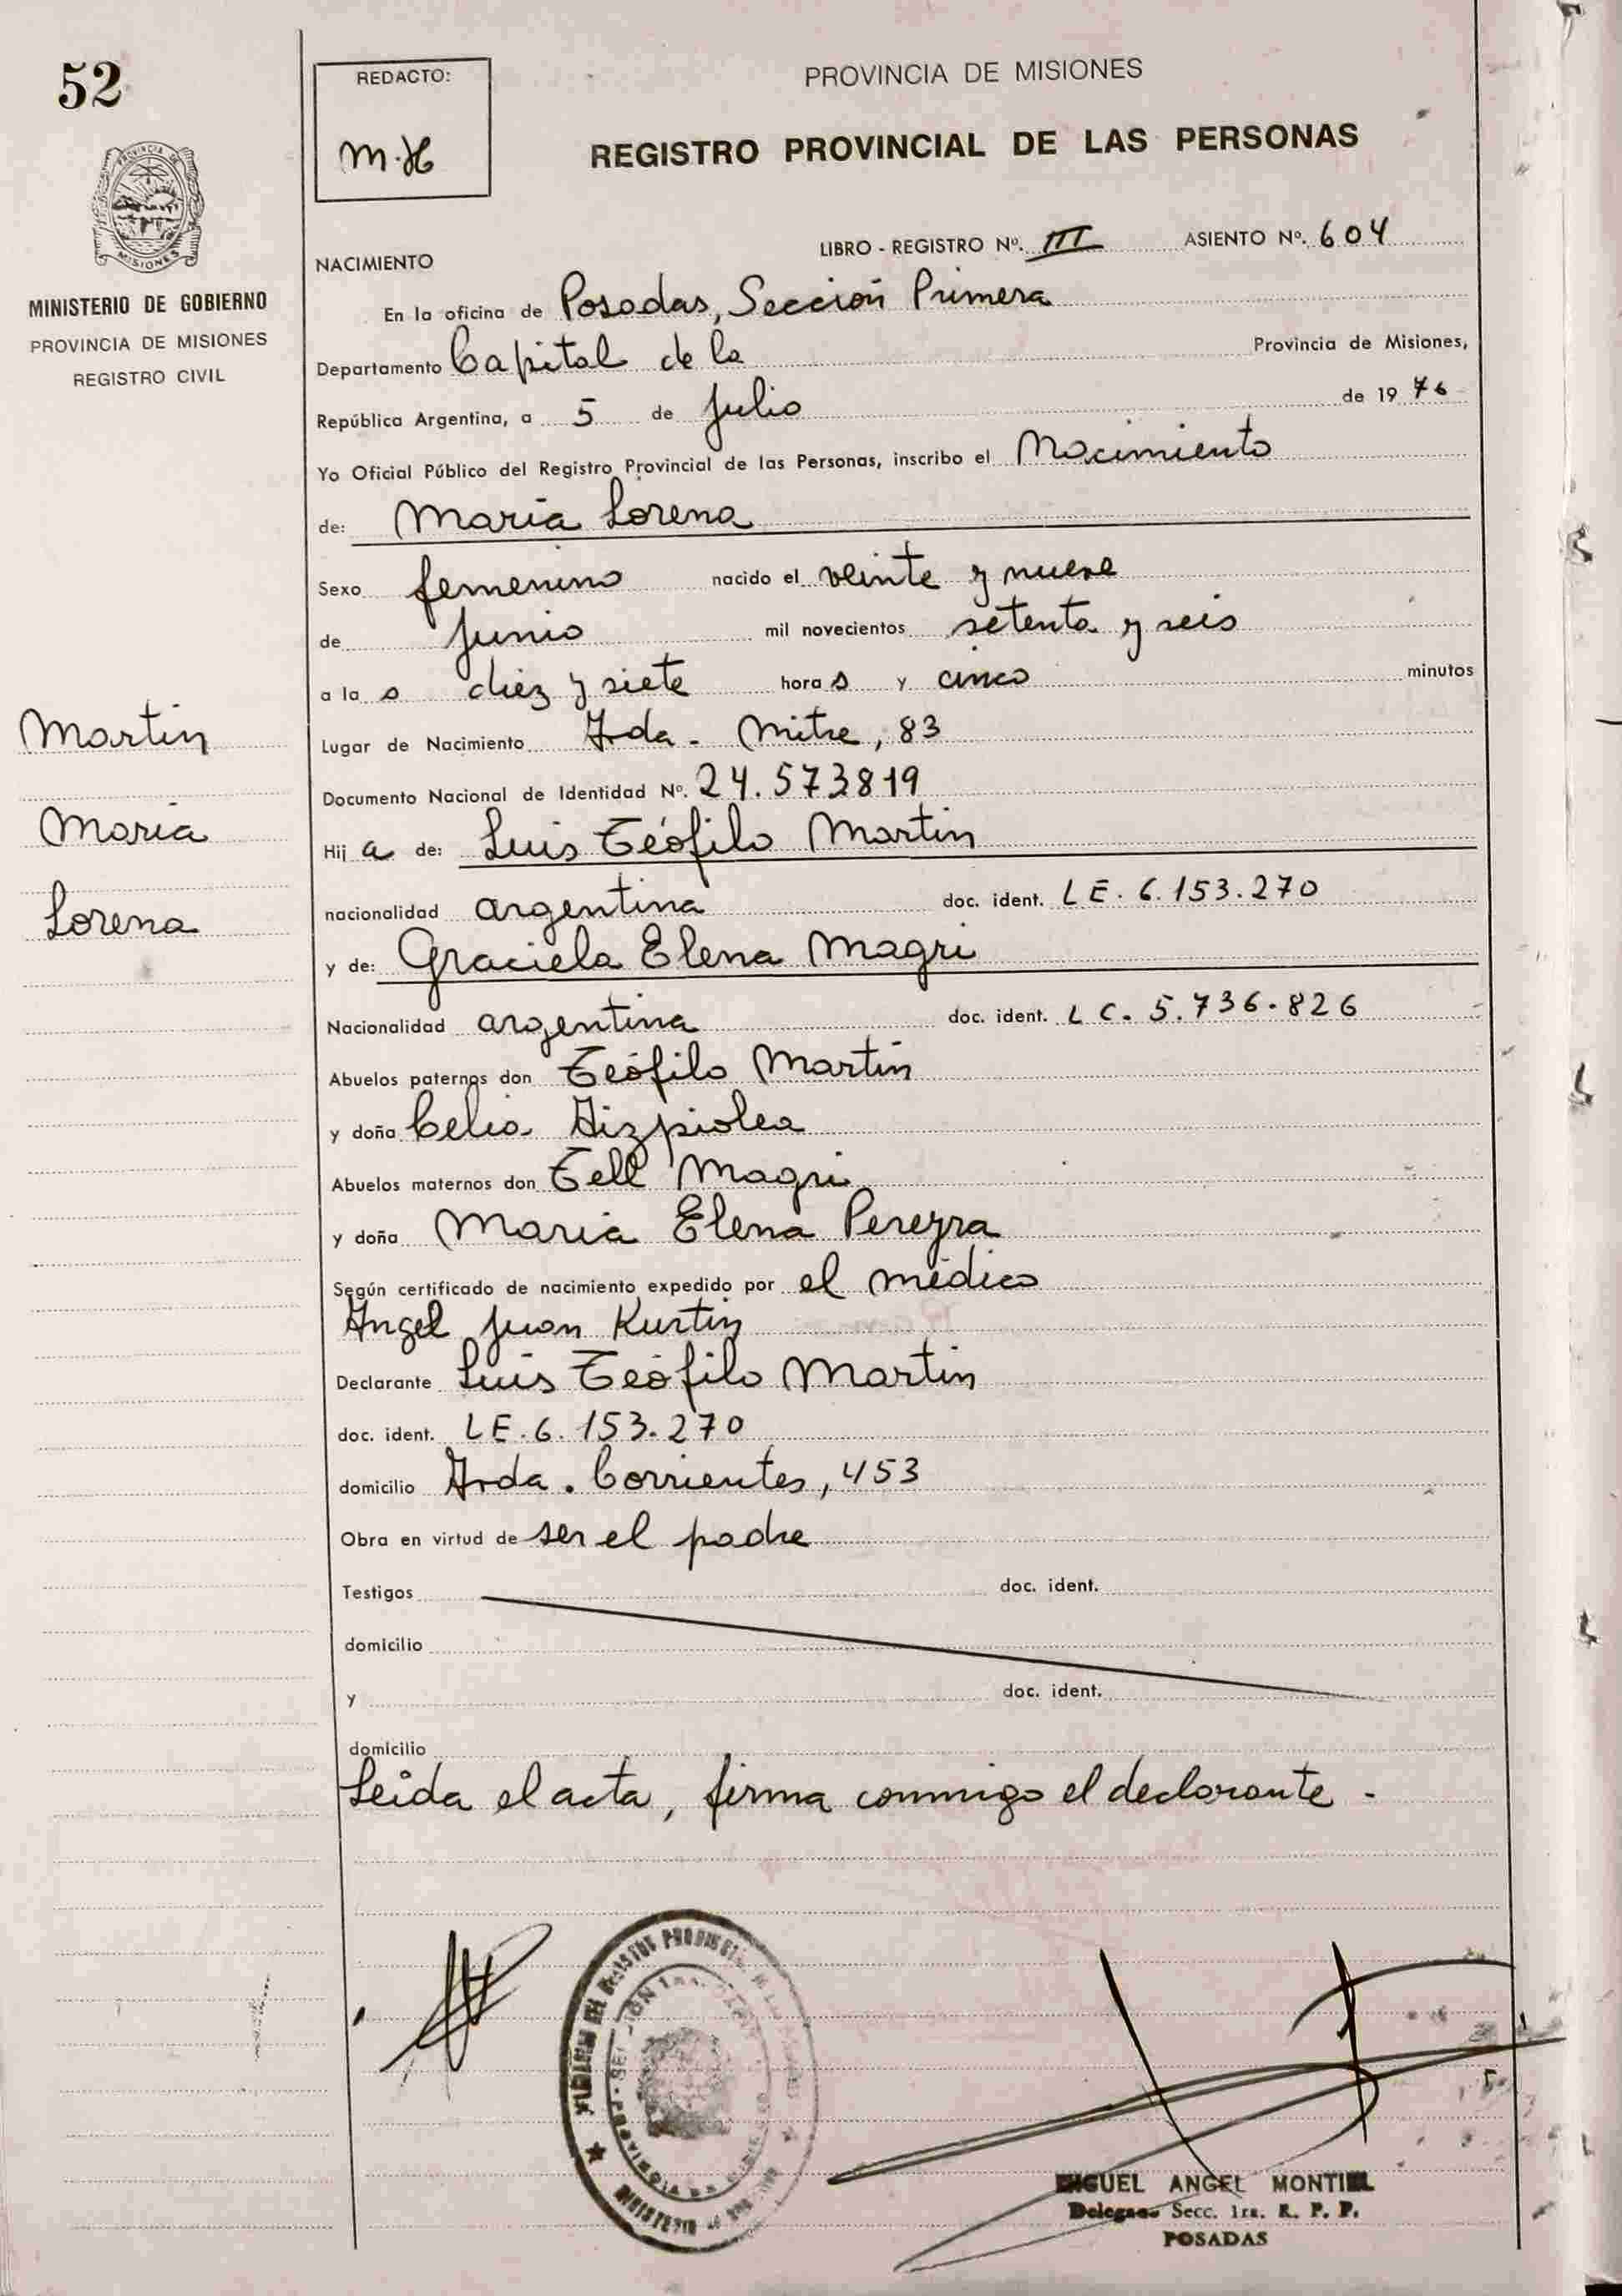 52
REDACTO:
M.H
PROVINCIA DE MISIONES
REGISTRO PROVINCIAL DE LAS PERSONAS
MISIONES
MINISTERIO DE GOBIERNO
PROVINCIA DE MISIONES
REGISTRO CIVIL
LIBRO - REGISTRO Nº. III ASIENTO Nº. 604
NACIMIENTO
En la oficina de Posadas, Sección Primera
Departamento Capital de la Provincia de Misiones,
República Argentina, a 5 de Julio de 1976
Yo Oficial Público del Registro Provincial de las Personas, inscribo el Nacimiento
de: María Lorena
Sexo femenino nacido el veinte y nueve
de Junio mil novecientos setenta y seis
a la s diez y siete hora s y cinco minutos
Lugar de Nacimiento Avda. Mitre, 83
Documento Nacional de Identidad Nº. 24.573819
Hij a de: Luis Teófilo Martin
nacionalidad argentina doc. ident. LE. 6.153.270
y de: Graciela Elena Magri
Nacionalidad argentina doc. ident. LC. 5.736.826
Abuelos paternos don Teófilo Martin
y doña Celia Aizpiolea
Abuelos maternos don Tell Magri
y doña María Elena Pereyra
Según certificado de nacimiento expedido por el médico
Angel Juan Kurtin
Declarante Luis Teófilo Martin
doc. ident. LE. 6.153.270
domicilio Avda. Corrientes, 453
Obra en virtud de ser el padre
Testigos doc. ident.
domicilio
y doc. ident.
domicilio
Leída el acta, firma conmigo el declarante -
Martin
María
Lorena
MIGUEL ANGEL MONTIEL
Delegado Secc. 1ra. R. P. P.
POSADAS